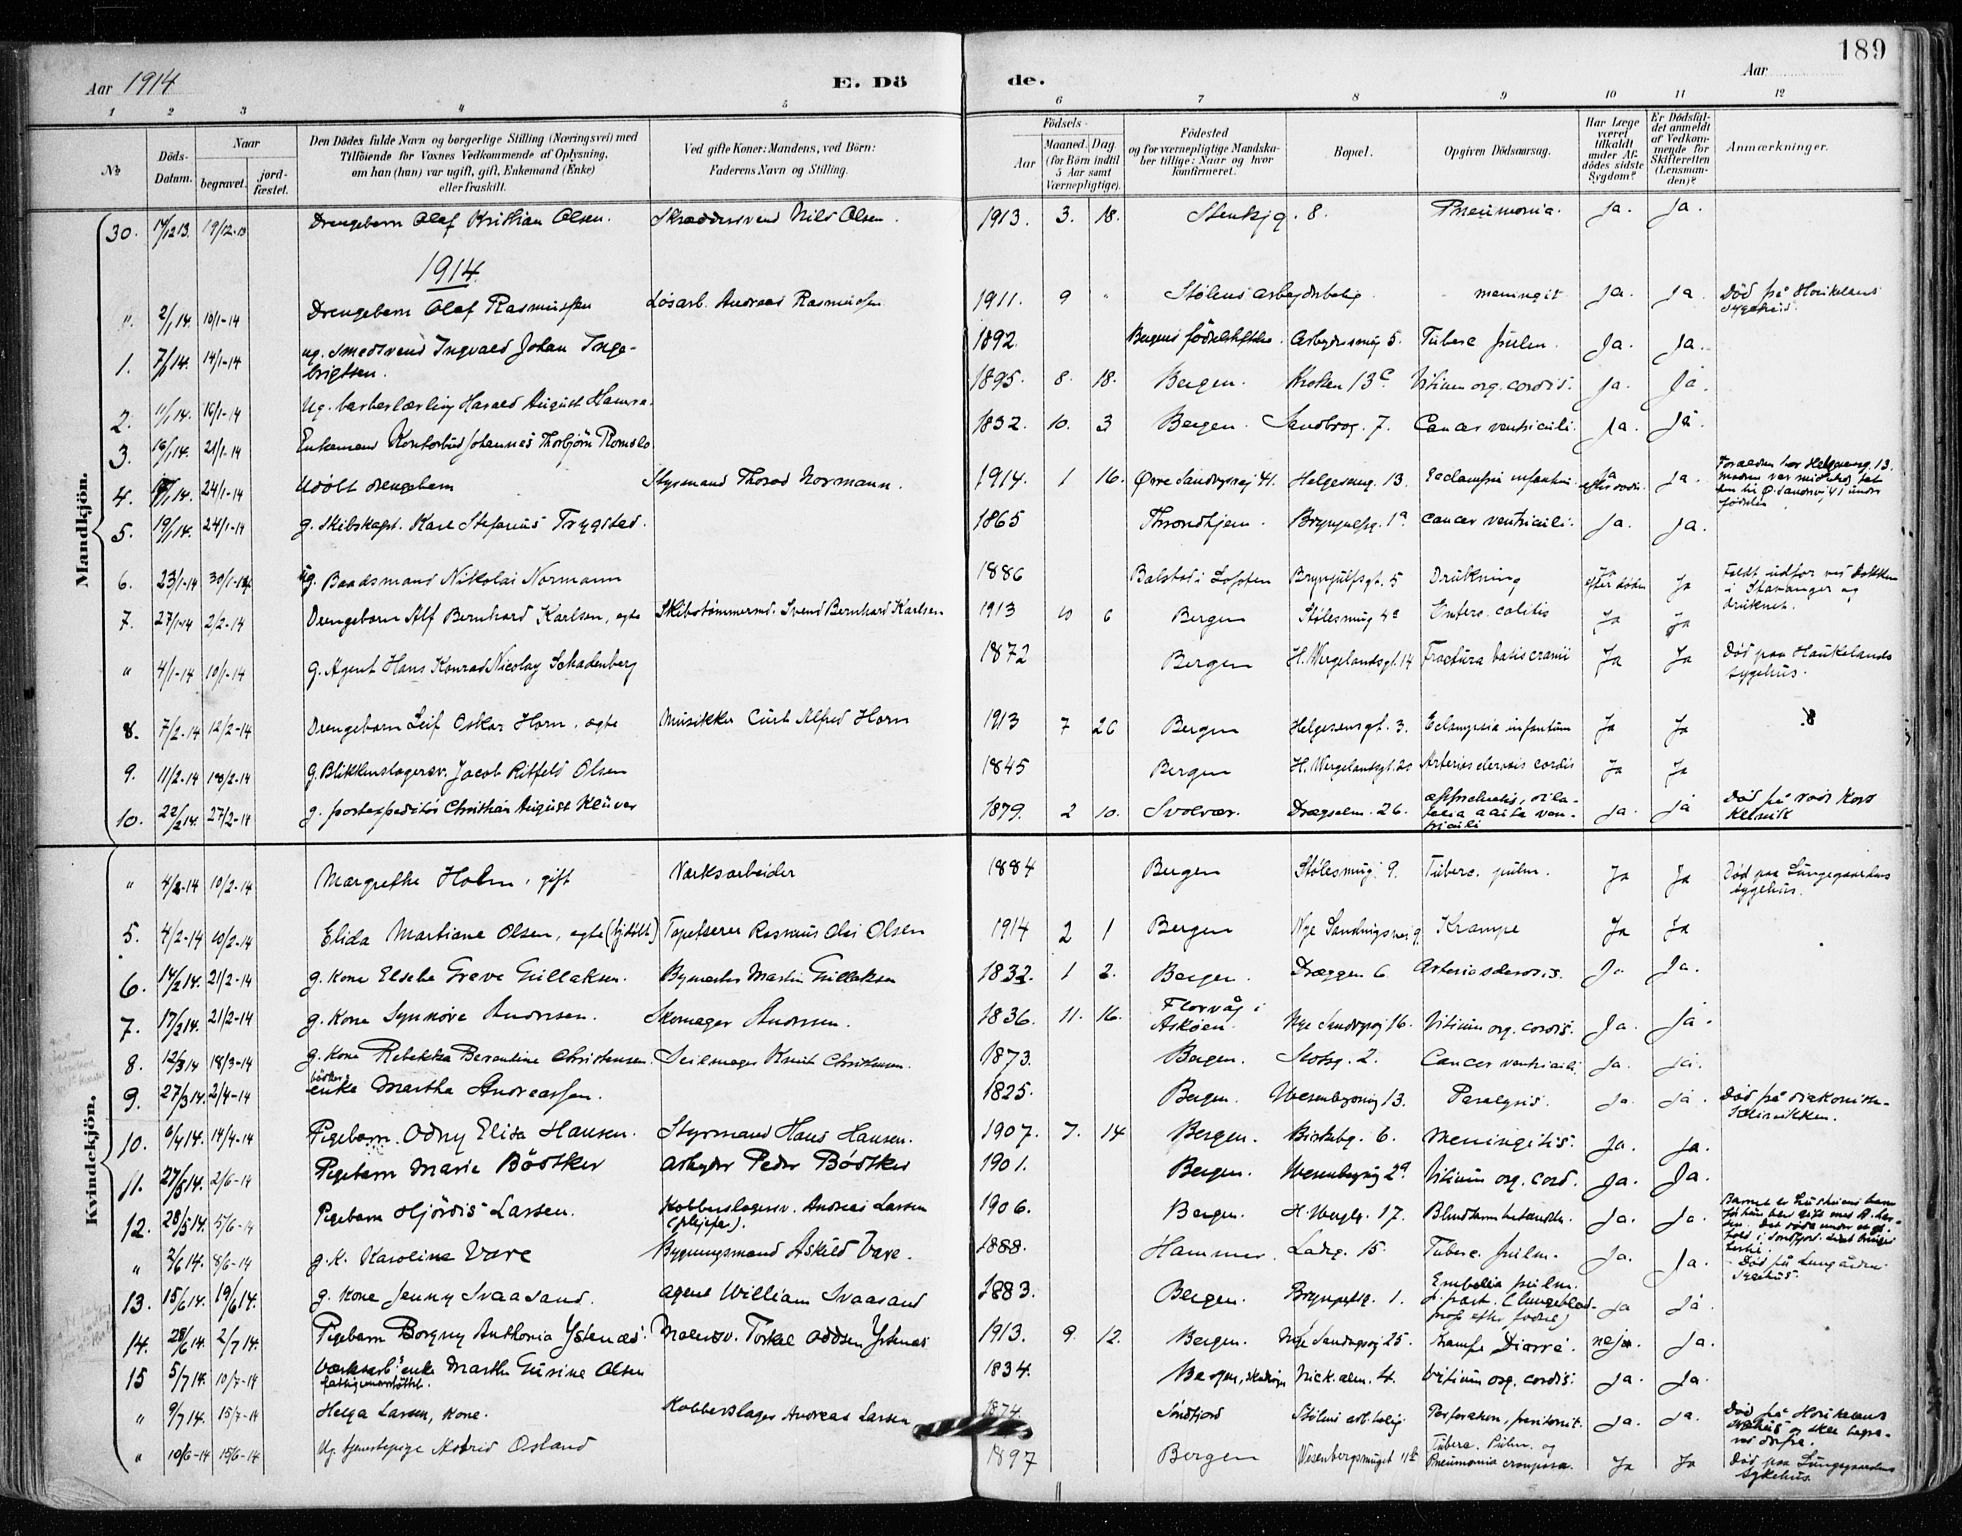 189
Aar 1914
E. Dö
de.
Aar
1 2 3 4 5 6 7 8 9 10 11 12
№
Döds-Datum.
Naar
begravet.
jord-fæstet.
Den Dödes fulde Navn og borgerlige Stilling (Næringsvei) med
Tilföiende for Voxnes Vedkommende af Oplysning,
om han (hun) var ugift, gift, Enkemand (Enke)
eller fraskilt.
Ved gifte Koner: Mandens, ved Börn:
Faderens Navn og Stilling.
Födsels-
Aar
Maaned. Dag
(for Börn indtil
5 Aar samt
Værnepligtige).
Födested
og for værnepligtige Mandska-
ber tillige: Naar og hvor
konfirmeret.
Bopæl.
Opgiven Dödsaarsag.
Har Læge
været
tilkaldt
under Af-
dödes sidste
Sygdom?
Er Dödsfal-
det anmeldt
af Vedkom-
mende for
Skifteretten
(Lensman-
den)?
Anmærkninger.
Mandkjön.
30. 14/12 13. 19/12-13 Drengebarn Olaf Kristian Olsen. Skræddersvend Nils Olsen. 1913. 3. 18. Stenkjg. 8. Pneumonia. Ja. Ja.
1914.
" 2/1 14. 10/1-14 Drengebarn Olaf Rasmussen Løsarb. Andreas Rasmussen 1911. 9 " Stølens arbejderbolig. meningit Ja. Ja. Død på Haukelands sygehus.
1. 7/1 14. 14/1-14 ug. smedsvend Ingvald Johan Inge-
brigtsen. 1892. Bergens fødselsstiftelse. Arbejdersmug 5. Tuberc pulm. Ja. Ja.
2. 11/1 14. 16/1-14 Ug. barberlærling Harald August Hamra. 1895. 8. 18. Bergen. Kroken 13c Vitium org. cordis. Ja. Ja.
3. 16/1 14. 21/1-14 Enkemand Kontorbud Johannes Thorbjörn Romslo 1832. 10. 3 Bergen. Sandbrog. 7. Cancer ventriculi. Ja. Ja.
4. 24/1-14 Udöbt drengebarn Styrmand Thorod Normann. 1914. 1 16. Øvre Sandvigsvej 41. Helgesensg. 13. Eclampsi infantum. Ja. Ja.
5. 19/1 14. 24/1-14 g. Skibskapt. Karl Stefanus Trygstad. 1865 Throndhjem. Brynjulfsg. 1a cancer ventriculi. Ja. Ja.
6. 23/1-14 30/1-14 ug. Baadsmand Nikolai Normann 1886 Balstad i Lofoten Brynjulfsgt. 5 Drukning Ja efter døden Ja Faldt udfor ved Dokken i Stavanger og druknet.
7. 27/1-14 2/2-14 Drengebarn Alf Bernhard Karlsen, egte Skibstømmermd. Svend Bernhard Karlsen 1913 10 6 Bergen Stølesmug 4c Entero. colitis Ja Ja
" 4/1-14 10/1-14 g. Agent Hans Konrad Nicolay Schadenberg 1872 Bergen H. Wergelandsgt. 14 Fractura basis cranii Ja Ja Død paa Haukelands sygehus.
8. 7/2-14 12/2-14 Drengebarn Leif Oskar Horn, egte Musikker Curt Alfred Horn 1913 7 26 Bergen Helgesensgt. 3. Eclampsia infantum Ja Ja
9. 11/2-14 18/2-14 g. Blikkenslagersv. Jacob Ritfeld Olsen 1845 Bergen H. Wergelandsgt. Arteriosclerosis cordis Ja Ja
10. 22/2 14. 27/2-14 g. postexpeditör Christian August Klüver 1879. 2 10. Svolvær. Drægsalm. 26. dila-
tatio acuta ven-
triculi Ja. Ja Død på røde Kors Klinik
Kvindekjön.
" 4/2-14 10/2-14 Margrethe Holm, gift Værksarbeider 1884 Bergen Stølesmug 9. Tuberc. pulm. Ja Ja Død paa Lungegaardens sygehus.
5. 4/2-14 10/2-14 Elida Martiane Olsen, egte (hjdöbt) Tapetserer Rasmus Olai Olsen 1914 2 1 Bergen Nye Sandvigsvei 9. Krampe Ja Ja
6. 14/2 14. 21/2-14 g. Kone Elsebe Greve Gullaksen. Bymester Martin Gullaksen 1832. 1 2. Bergen. Dræggen 6. Arteriosclerosis. Ja Ja.
7. 17/2 14. 21/2-14 g. Kone Synnöve Andersen. Skomager Andersen. 1836. 11. 16. Florvåg i Askøen. Nye Sandvgsvej 16. Vitium org. cordis. Ja. Ja.
8. 12/3 14 18/3-14 g. Kone Rebekka Berentine Christensen. Seilmager Knut Christensen. 1873. Bergen. Slotsg. 2. Cancer ventriculi. Ja. Ja.
9. 27/3 14. 2/4-14 enke Martha Andreassen. 1825. Bergen. Wesenbergsmug 13. Paralysis. Ja. Ja. Død på diakonisse-
klinikken.
10. 6/4 14. 14/4-14 Pigebarn. Odny Elisa Hansen. Styrmand Hans Hansen. 1907. 7. 14 Bergen. Birkebg. 6. Meningitis. Ja. Ja.
11. 27/5 14. 2/6-14 Pigebarn Marie Bödtker arbejder Peder Bödtker 1901. Bergen. Wesenbergsmug 2a. Vitium org. cord. Ja. Ja.
12. 28/5 14. 5/6-14 Pigebarn Hjördis Larsen. Kobberslagersv. Andreas Larsen (plejefar). 1906. Bergen. H. Wergelg. 17. Blindtarmbetændelse. Ja. Ja.
" 2/6 14. 8/6-14 g. K. Karoline Vare Bygningsmand Askild Vare. 1888. Hammer. Ladeg. 15. Tuberc. pulm. Ja. Ja. Død på Lungården sygehus.
13. 15/6 14. 19/6 14. g. Kone Jenny Svaasand. agent William Svaasand 1883. Bergen. Brynjulfsg. 1. Embolia pulm.
p. part. (lungeblod-
prop efter fødsel) Ja Ja
14. 28/6 14. 2/7 14. Pigebarn Borgny Anthonia Ystenæs. Malersv. Torkel Oddsen Ystenæs 1913. 9. 12. Bergen. Nye Sandvgsvej 25. Krampe Diarré. nej. Ja.
15 5/7 14. 10/7-14 Værksarb's enke Marthe Gurine Olsen
fattigunderstöttet. 1834. Bergen. Nick. alm. 4. Vitium org. cordis. Ja. Ja.
" 9/7 14. 15/7-14 Helga Larsen, kone. Kobberslager Andreas Larsen 1874. Söndfjord Stølens arb. bolig Perforation, peritonit. Ja. Ja. Død på Haukelands sygehus og skal begra-
ves derfra.
" 10/6-14 15/6-14 Ug. tjenestepige Astrid Osland 1897 Bergen Wesenbergsmuget 11b Tuberc. Pulm. og
Pneumonia crouposa. Ja Ja Død paa Lungegaardens sykehus.